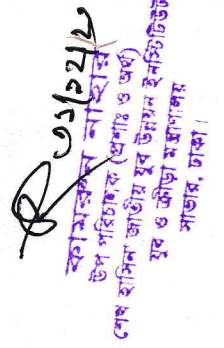 ৩১/১২/২
কামরুল হাসান
উপ পরিচালক (প্রশাসন ও অর্থ)
শেখ হাসিনা জাতীয় যুব উন্নয়ন ইনস্টিটিউট
যুব ও ক্রীড়া মন্ত্রণালয়
সাভার, ঢাকা।